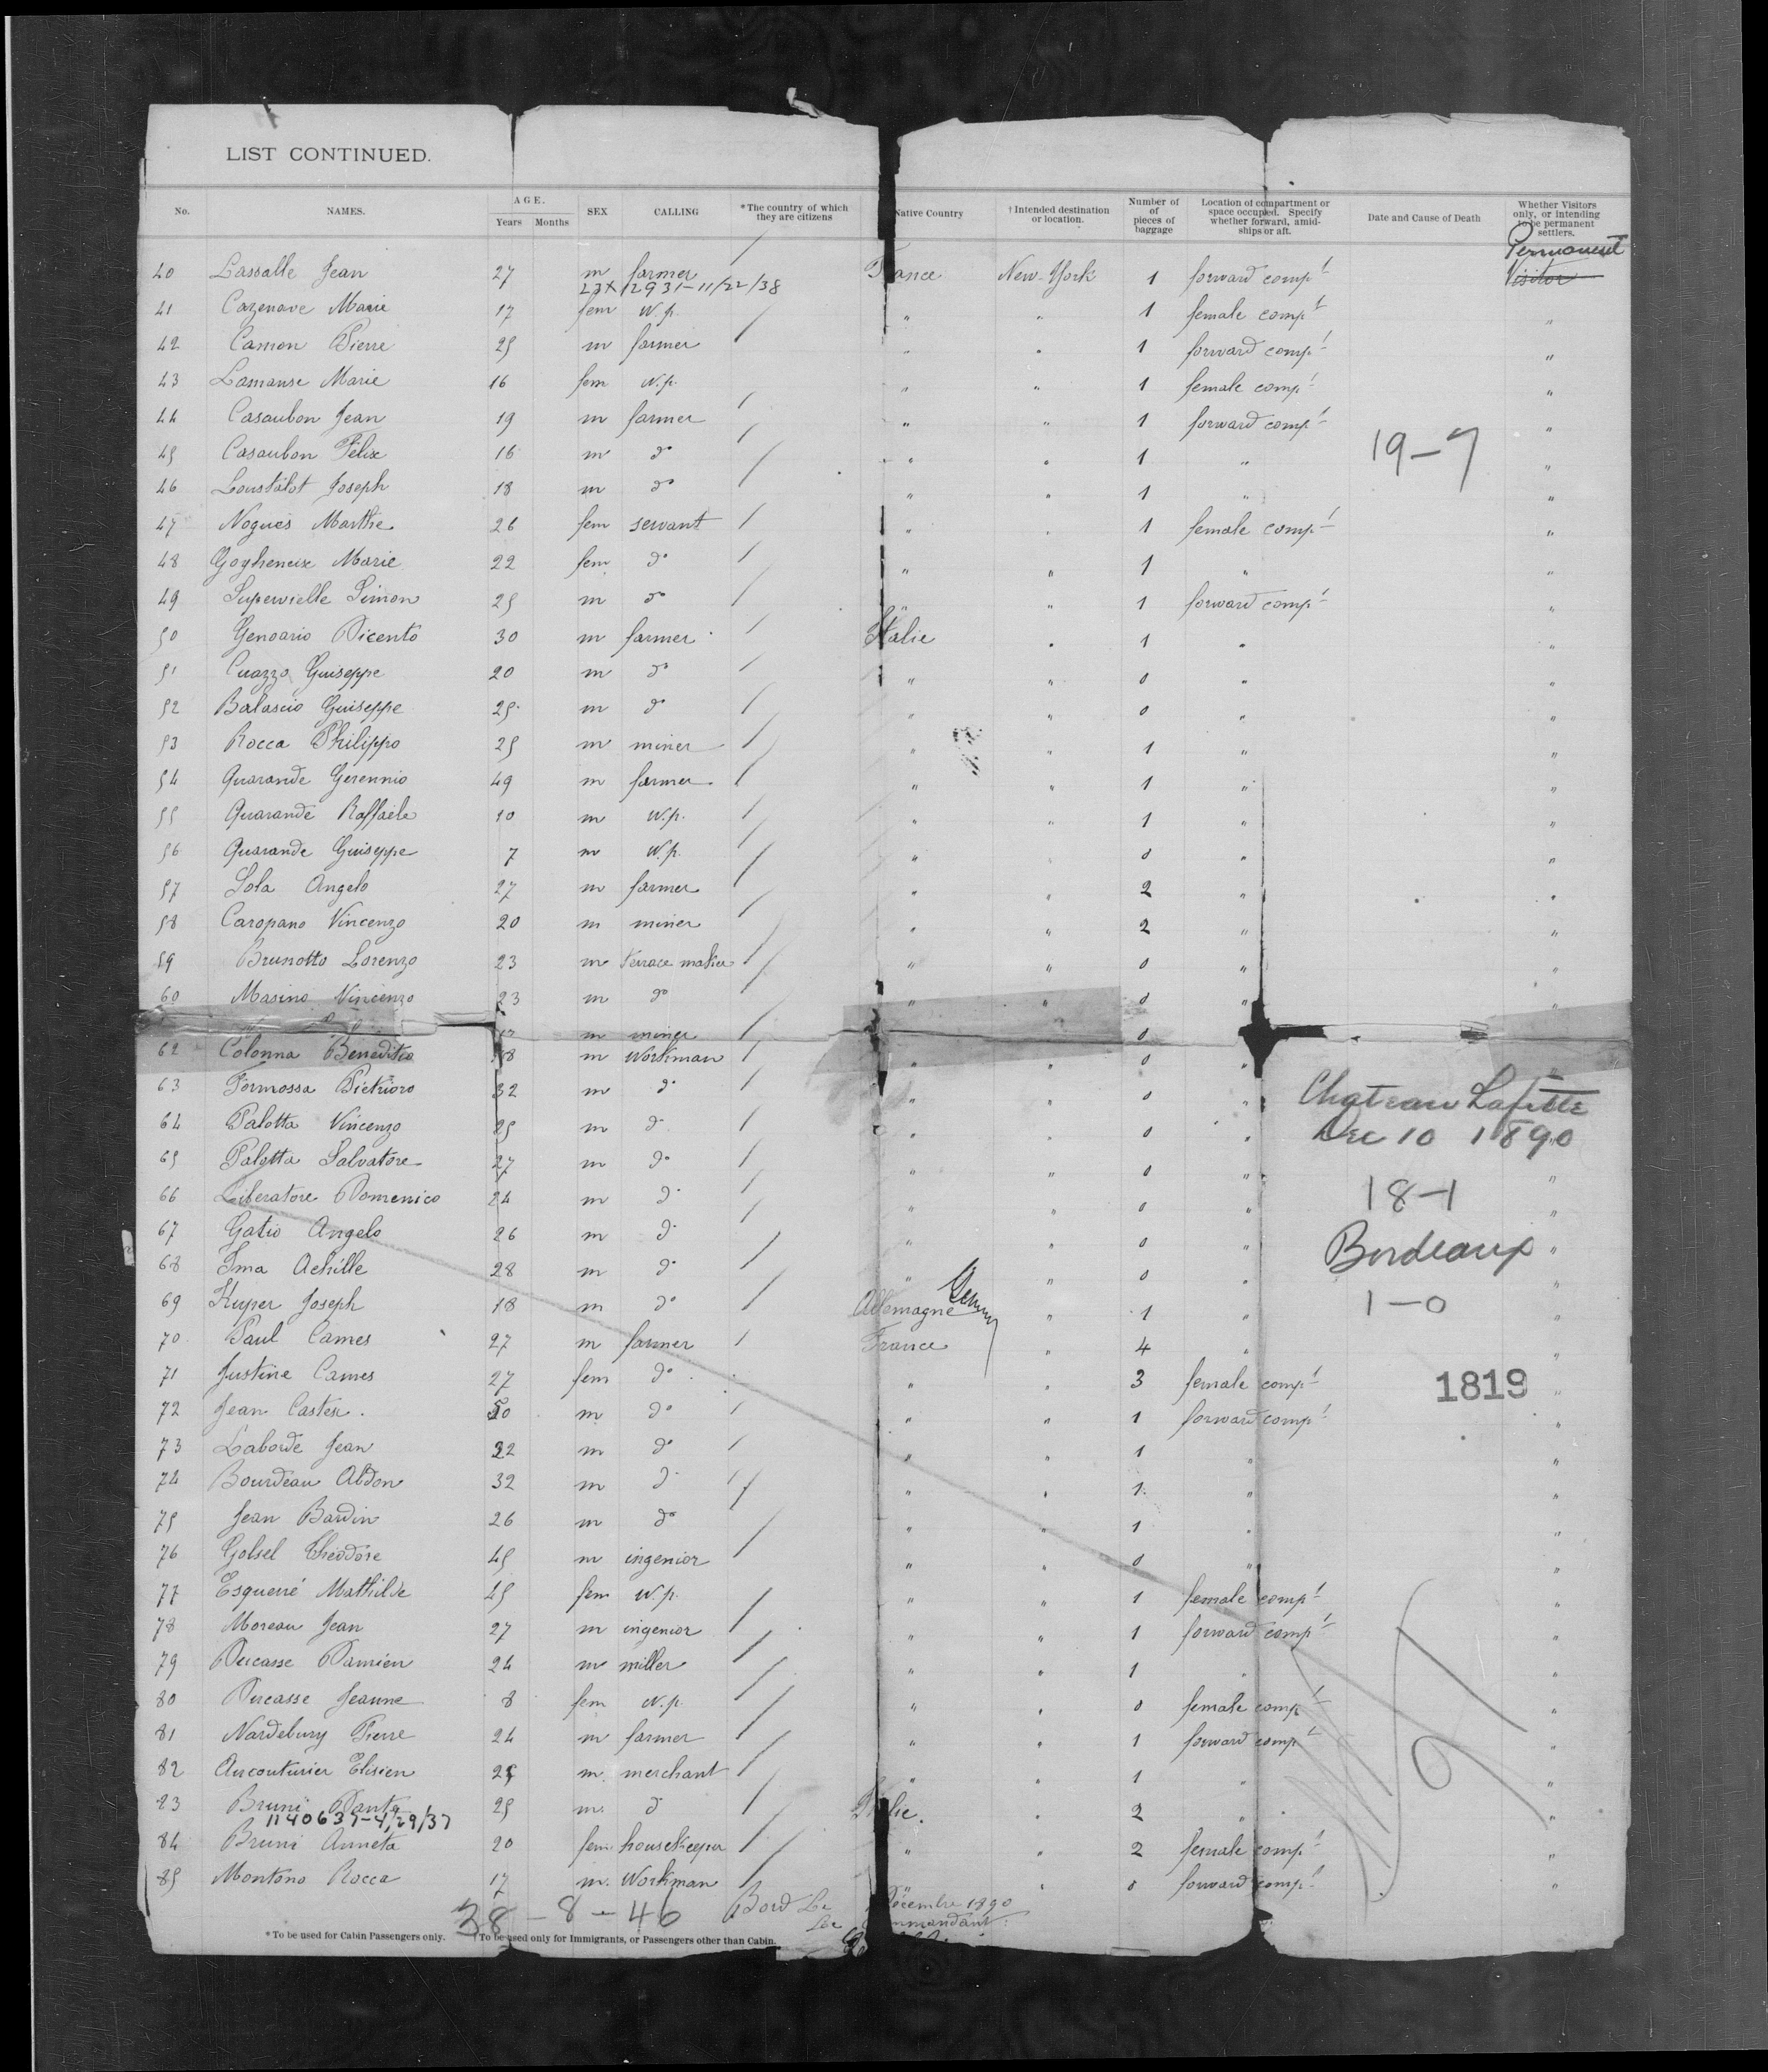 LIST CONTINUED.
No. NAMES. AGE. Years Months SEX CALLING *The country of which they are citizens Native Country †Intended destination or location. Number of of pieces of baggage Location of compartment or space occupied. Specify whether forward, amidships or aft. Date and Cause of Death Whether Visitors only, or intending to be permanent settlers.
Permanent
40 Lassalle Jean 27 m farmer / France New-York 1 forward compt Visitor
23X12931-11/22/38
41 Cazenave Marie 17 fem W.p. " " 1 female compt "
42 Camon Pierre 25 m farmer / " " 1 forward compt "
43 Lamanse Marie 16 fem W.p. " " 1 female compt "
44 Casaubon Jean 19 m farmer / " " 1 forward compt "
45 Casaubon Félix 16 m do / " " 1 " "
19-7
46 Loustalot Joseph 18 m do / " " 1 " "
47 Nogués Marthe 26 fem servant / " " 1 female compt "
48 Gogheneix Marie 22 fem do / " " 1 " "
49 Supervielle Simon 25 m do / " " 1 forward compt "
50 Genoario Vicento 30 m farmer / Italie " 1 " "
51 Cuazzo Guiseppe 20 m do / " " 0 " "
52 Balascio Guiseppe 25 m do / " " 0 " "
53 Rocca Philippo 25 m miner / " " 1 " "
54 Quarande Gerennio 49 m farmer / " " 1 " "
55 Quarande Raffaele 10 m W.p. / " " 1 " "
56 Quarande Guiseppe 7 m W.p. / " " 0 " "
57 Sola Angelo 27 m farmer / " " 2 " "
58 Caropano Vincenzo 20 m miner / " " 2 " "
59 Brunotto Lorenzo 23 m terrace maker / " " 0 " "
60 Masino Vincenzo 23 m do / " " 0 " "
m miner / 0
62 Colonna Beneditto 18 m Workman / " " 0 " "
63 Formossa Pietrioro 32 m do / " " 0 " "
Chateau Lafitte
64 Palotta Vincenzo 25 m do / " " 0 " "
Dec 10 1890
65 Palotta Salvatore 27 m do / " " 0 " "
66 Liberatore Domenico 24 m do / " " 0 " "
18-1
67 Gatio Angelo 26 m do / " " 0 " "
Bordeaux
68 Ima Achille 28 m do / " " 0 " "
69 Kuper Joseph 18 m do / Allemagne Germ " 1 " "
1-0
70 Paul Cames 27 m farmer / France " 4 " "
71 Justine Cames 27 fem do " " 3 female compt "
1819
72 Jean Castex 50 m do / " " 1 forward compt "
73 Laborde Jean 32 m do / " " 1 " "
74 Bourdeau Abdon 32 m do / " " 1 " "
75 Jean Bardin 26 m do / " " 1 " "
76 Golsel Théodore 45 m ingenior / " " 0 " "
77 Esquerré Mathilde 45 fem W.p. " " 1 female compt "
78 Moreau Jean 27 m ingenior / " " 1 forward compt "
79 Ducasse Damien 24 m miller / " " 1 " "
80 Ducasse Jeanne 8 fem W.p. / " " 0 female compt "
81 Nardebury Pierre 24 m farmer / " " 1 forward compt "
82 Aucouturier Elisien 25 m merchant / " " 1 " "
83 Bruni Dante 25 m. do / Italie. " 2 " "
1140637-4/29/37
84 Bruni Anneta 20 fem housekeeper / " " 2 female compt "
85 Montono Rocca 17 m. Workman / " " 0 forward compt "
38-8-46
Bord Le Décembre 1890
Le Commandant:
*To be used for Cabin Passengers only. †To be used only for Immigrants, or Passengers other than Cabin.